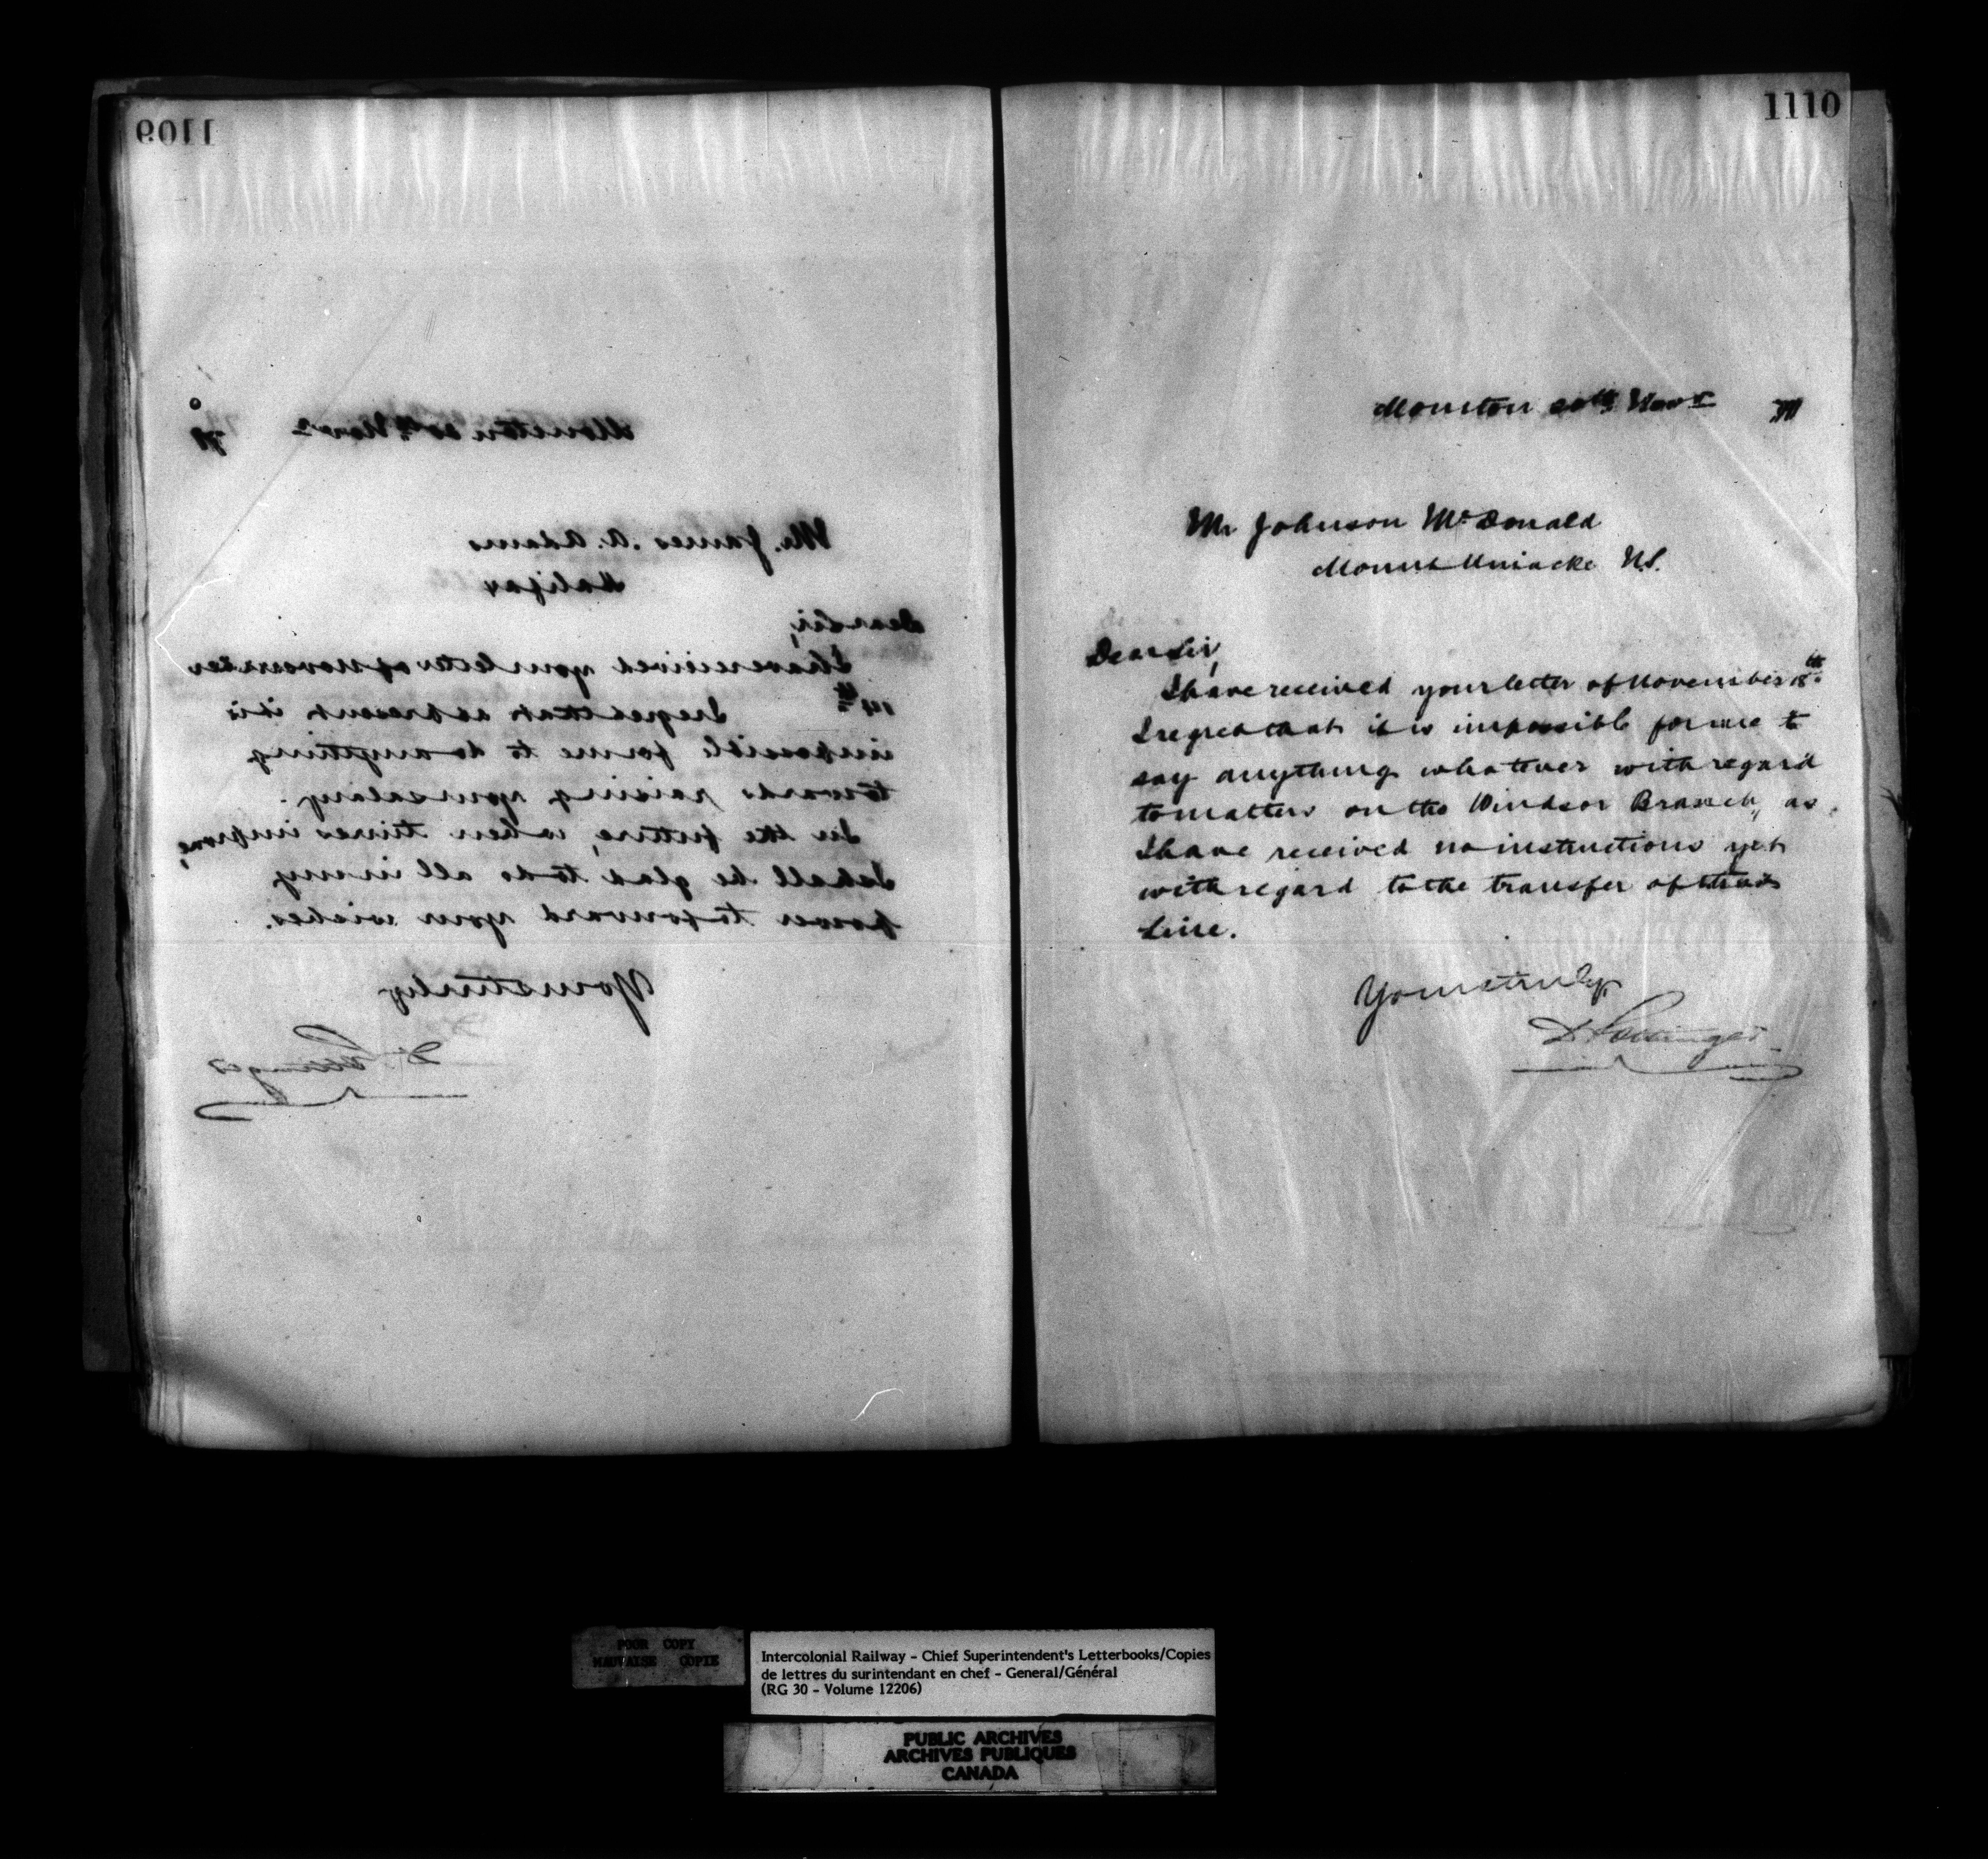 1109
Moncton 20th Novr 79
Mr. James. A. Adams
Halifax
Dear Sir,
I have received your letter of November
14th I regret that at present it is
impossible for me to do anything
towards raising your salary.
In the future, when times improve,
I shall be glad to do all in my
power to forward your wishes.
Yours truly
D. Pottinger
1110
Moncton 20th Novr 79
Mr Johnson McDonald
Mount Uniacke N.S.
Dear Sir,
I have received your letter of November 18th.
I regret that it is impossible for me to
say anything whatever with regard
to matters on the Windsor Branch, as
I have received no instructions yet
with regard to the transfer of that
Line.
Yours truly
D Pottinger
POOR COPY
MAUVAISE COPIE
Intercolonial Railway - Chief Superintendent's Letterbooks/Copies
de lettres du surintendant en chef - General/Général
(RG 30 - Volume 12206)
PUBLIC ARCHIVES
ARCHIVES PUBLIQUES
CANADA